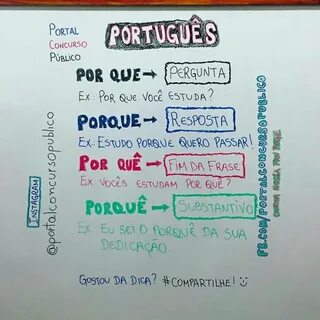 PORTAL
CONCURSO
PÚBLICO
PORTUGUÊS
POR QUE → PERGUNTA
EX.: POR QUE VOCÊ ESTUDA?
PORQUE → RESPOSTA
EX: ESTUDO PORQUE QUERO PASSAR!
POR QUÊ → FIM DA FRASE
EX: VOCÊS ESTUDAM POR QUÊ?
PORQUÊ → SUBSTANTIVO
EX: EU SEI O PORQUÊ DA SUA
DEDICAÇÃO.
GOSTOU DA DICA? #COMPARTILHE!
INSTAGRAM
@portalconcursopublico
FB.COM/PORTALCONCURSOPUBLICO
CURTA NOSSA FAN PAGE